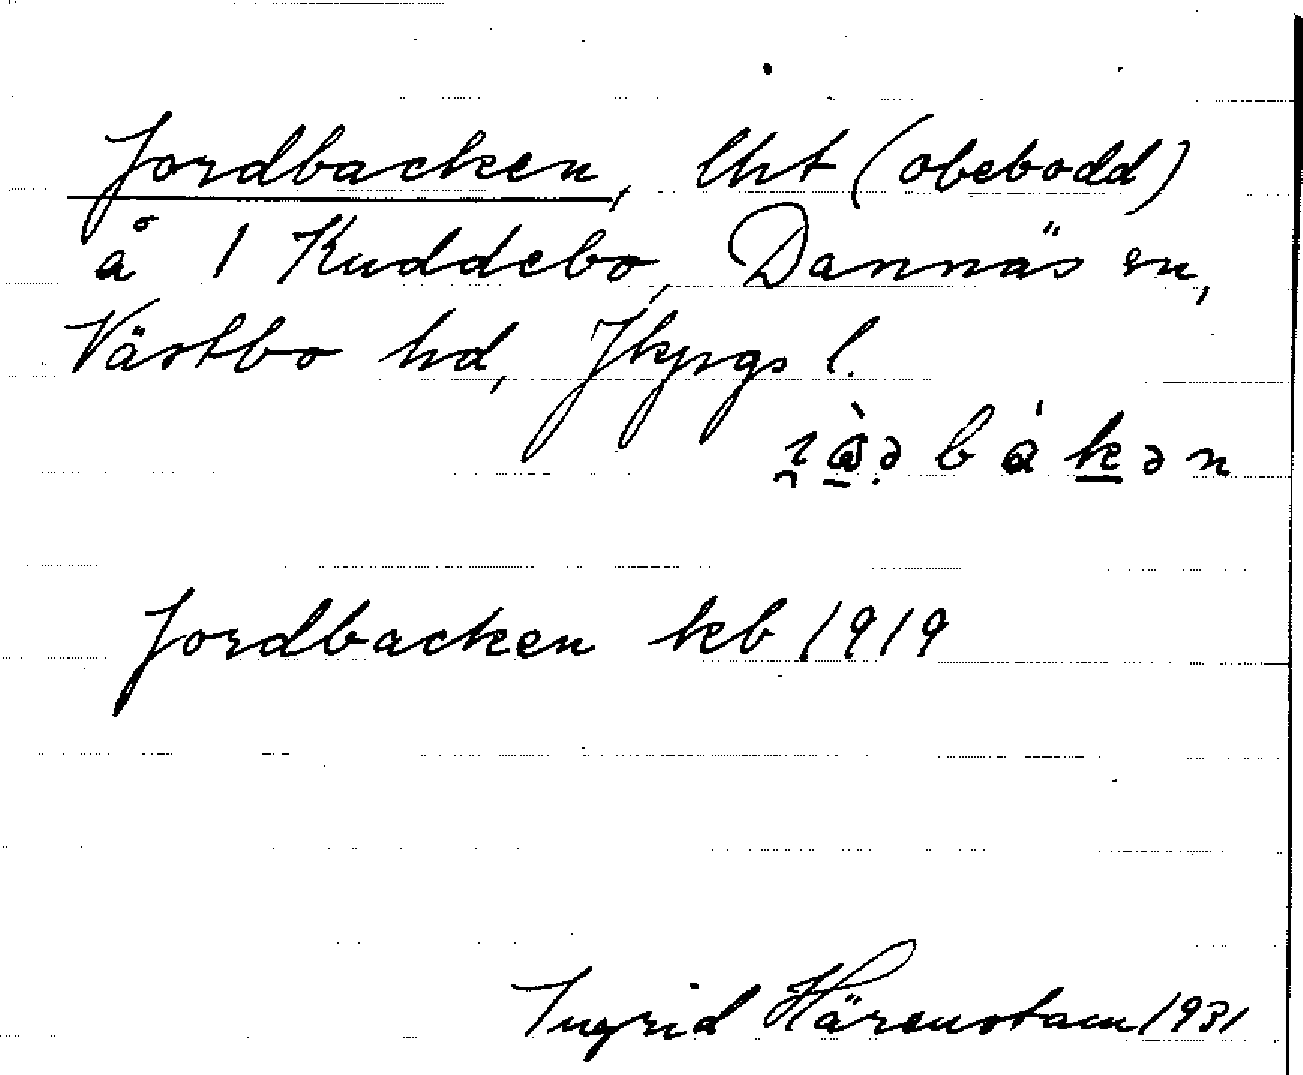 Jordbacken, lht (obebodd)
å 1 Kuddebo, Dannäs sn,
Västbo hd, Jkpgs l.
Jordbacken kb 1919
Ingrid Härenstam 1931